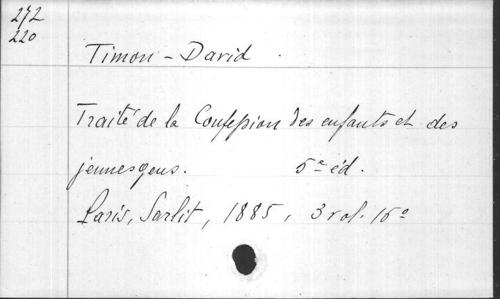 272
220
Timon-David.
Traité de la Confession des enfants et des
jeunes gens. 5e éd.
Paris, Sarlit, 1885, 3 vol. 16°